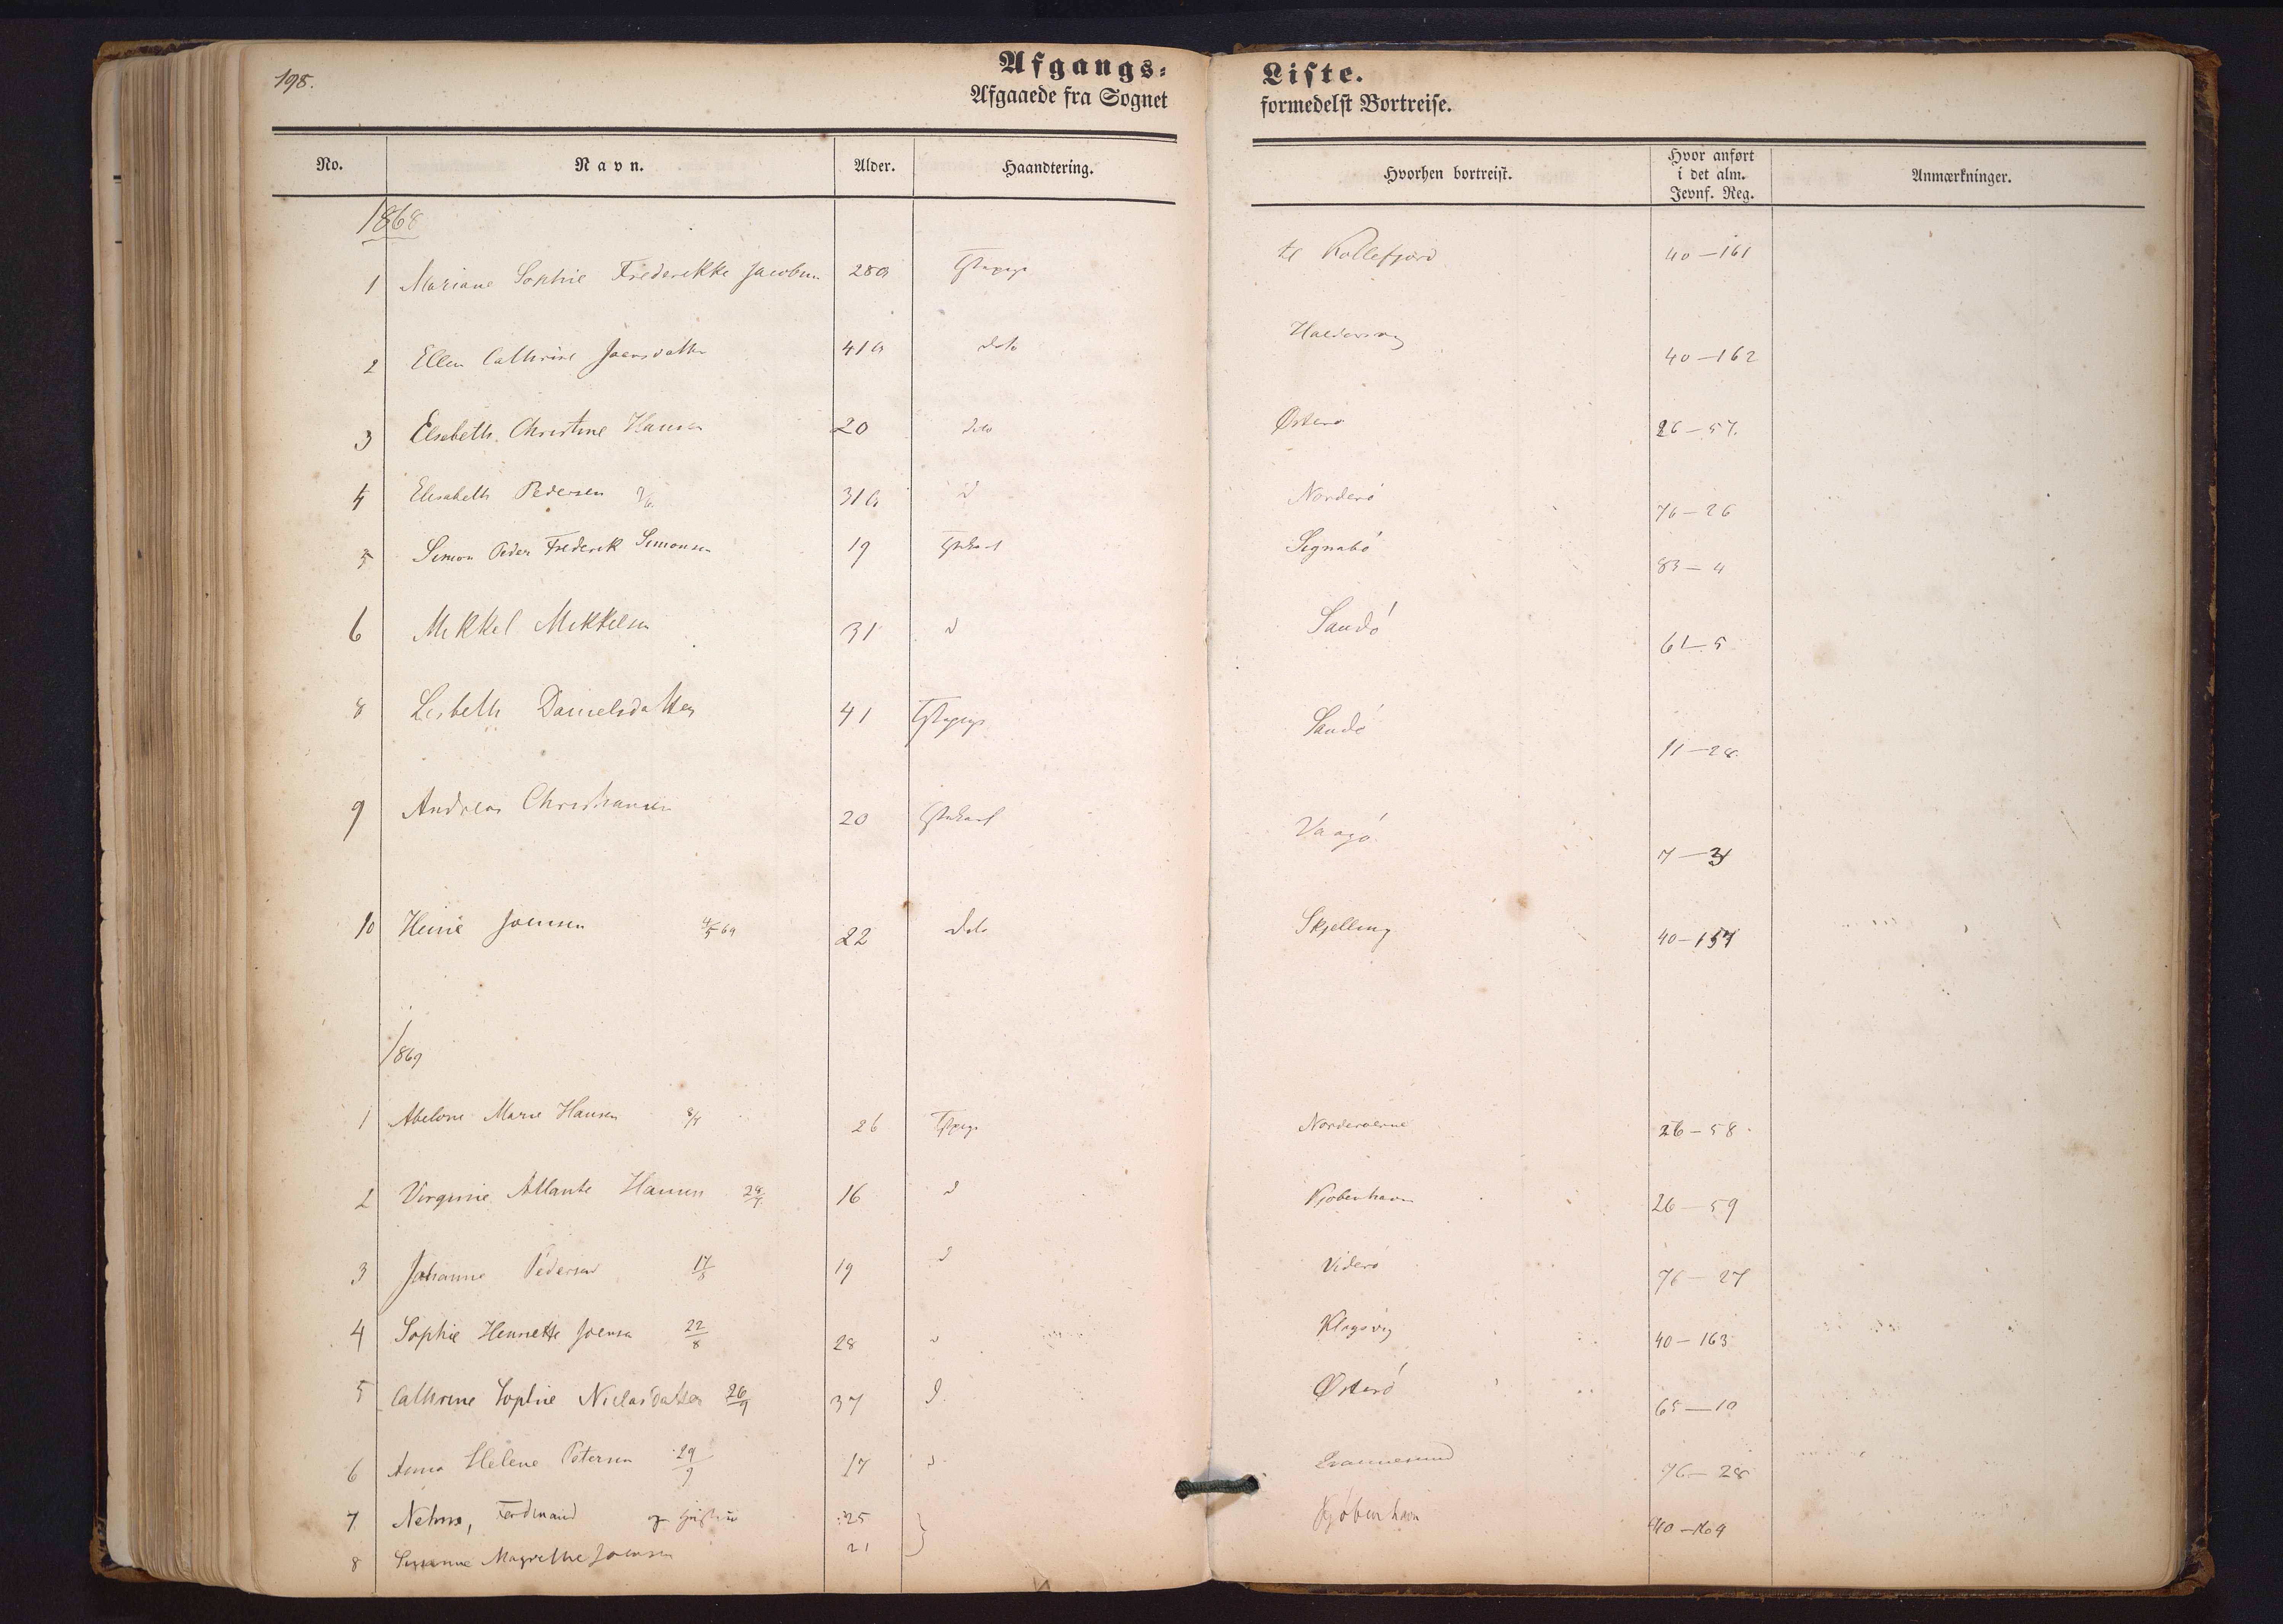 198.
Afgangs-
Liste.
Afgaaede fra Sognet
formedelst Bortreise.
No. Navn. Alder. Haandtering. Hvorhen bortreist. Hvor anført i det alm. Jevnf. Reg. Anmærkninger.
1868
1 Mariane Sophie Frederikke Jacobsen 28 Kollefjord 40-161
2 Ellen Cathrine Joensdatter 41 dito 40-162
3 Elsebeth Christine Hansen 20 dito Østerø 26-57.
4 Elisabeth Pedersen 31 d Norderø 76-26
5 Simon Peder Frederik Simonsen 19 Signabø 83-4
6 Mikkel Mikkelsen 31 d Sandø 61-5
8 Lisbeth Danielsdatter 41 Sandø 11-28.
9 Andreas Christiansen 20 Vaagø 7-
10 Heine Joensen 22 dito Skjelling 40-157
1869
1 Abelone Marie Hansen 26 Norderøerne 26-58.
2 Virginie Atlante Hansen 16 d Kjøbenhavn 26-59
3 Johanne Pedersen 19 d Viderø 76-27
4 Sophie Henriette Joensen 22/8 28 Klagsvig 40-163
5 Cathrine Sophie Niclasdatter 26/9 37 d Østerø 65-10
6 Anna Helene Petersen 29/9 17 76-28
7 Ferdinand og 25 Kjøbenhavn
8 Susanne Magrethe Joensen 21